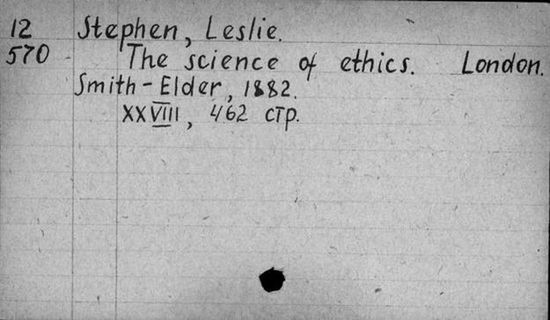 12 Stephen, Leslie.
570 The science of ethics. London.
Smith-Elder, 1882.
XXVIII, 462 стр.